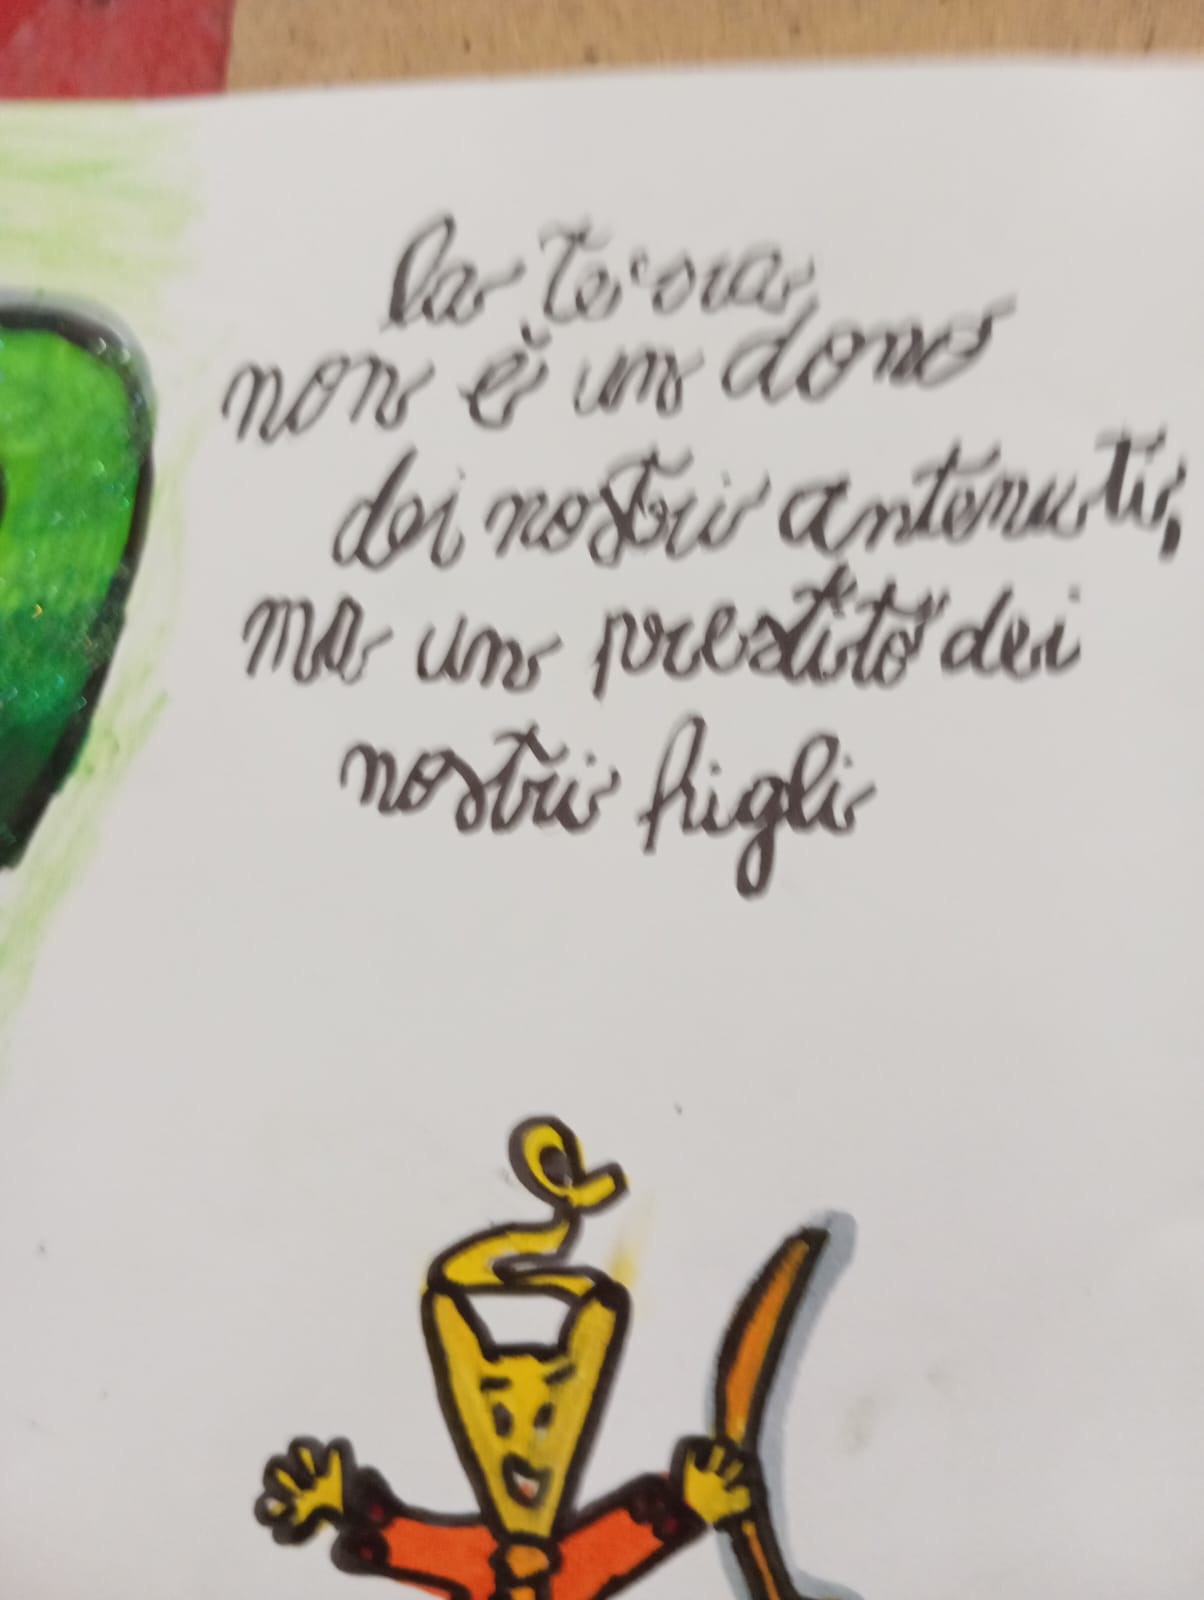 la terra
non è un dono
dei nostri antenati,
ma un prestito dei
nostri figli